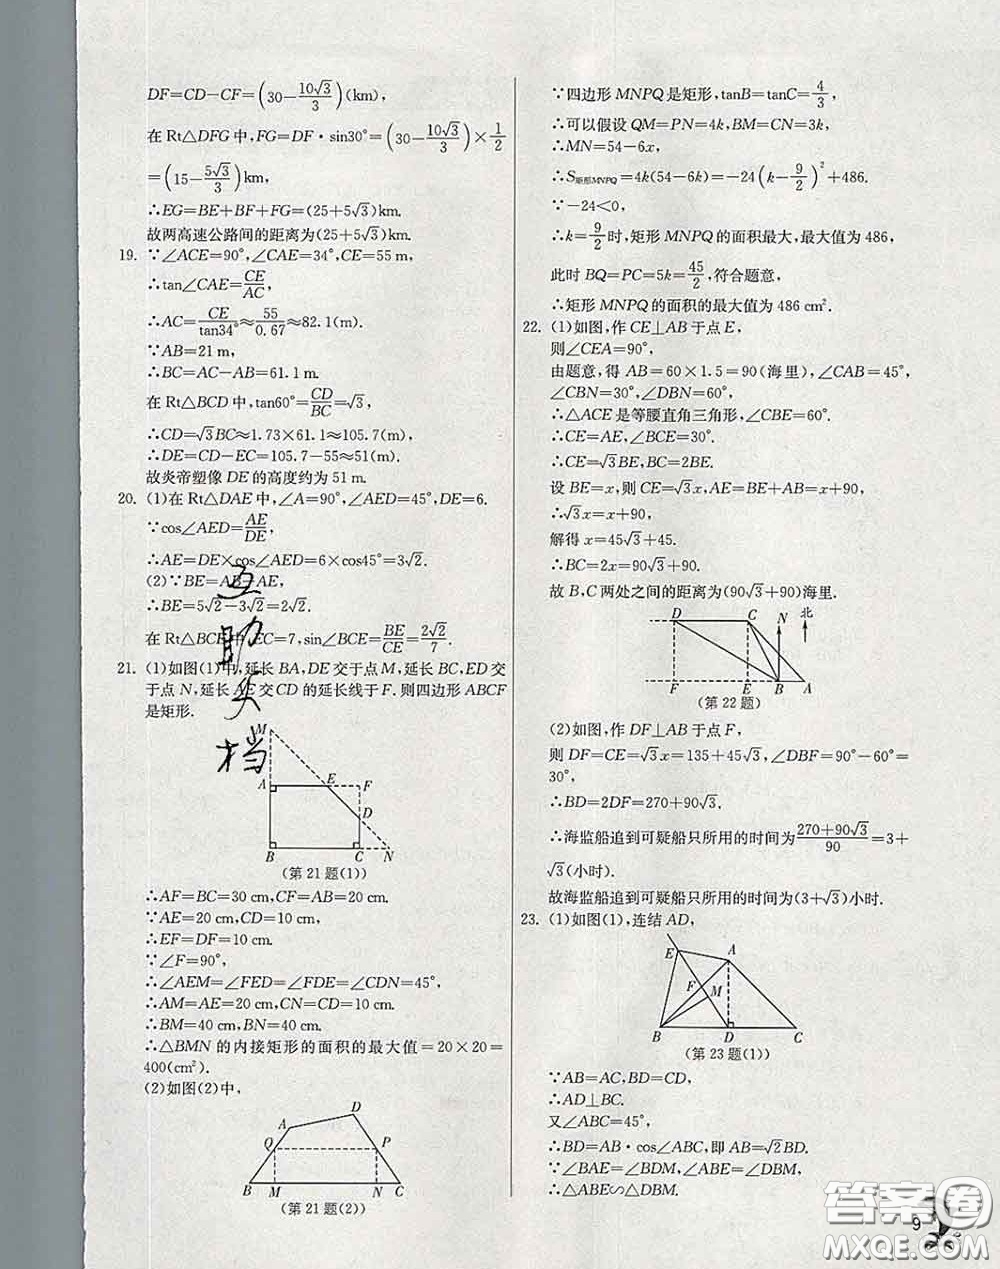 DF=CD-CF=(30-10√3/3)(km),
在 Rt△DFG 中,FG=DF·sin30°=(30-10√3/3)×1/2
=(15-5√3/3)km,
∴EG=BE+BF+FG=(25+5√3)km.
故两高速公路间的距离为(25+5√3)km.
19. ∵∠ACE=90°,∠CAE=34°,CE=55 m,
∴tan∠CAE=CE/AC,
∴AC=CE/tan34°≈55/0.67≈82.1(m).
∵AB=21 m,
∴BC=AC-AB=61.1 m.
在 Rt△BCD 中,tan60°=CD/BC=√3,
∴CD=√3BC≈1.73×61.1≈105.7(m).
∴DE=CD-EC=105.7-55≈51(m).
故炎帝塑像 DE 的高度约为 51 m.
20. (1)在 Rt△DAE 中,∠A=90°,∠AED=45°,DE=6.
∵cos∠AED=AE/DE,
∴AE=DE×cos∠AED=6×cos45°=3√2.
(2)∵BE=AB-AE,
∴BE=5√2-3√2=2√2.
在 Rt△BCE 中,EC=7,sin∠BCE=BE/CE=2√2/7.
21. (1)如图(1)中,延长 BA,DE 交于点 M,延长 BC,ED 交
于点 N,延长 AE 交 CD 的延长线于 F. 则四边形 ABCF
是矩形.
M
A E F
D
B C N
(第 21 题(1))
∴AF=BC=30 cm,CF=AB=20 cm.
∵AE=20 cm,CD=10 cm,
∴EF=DF=10 cm.
∵∠F=90°,
∴∠AEM=∠FED=∠FDE=∠CDN=45°,
∴AM=AE=20 cm,CN=CD=10 cm.
∴BM=40 cm,BN=40 cm.
∴△BMN 的内接矩形的面积的最大值=20×20=
400(cm²).
(2)如图(2)中,
D
A
Q P
B M N C
(第 21 题(2))
∵四边形 MNPQ 是矩形,tanB=tanC=4/3,
∴可以假设 QM=PN=4k,BM=CN=3k,
∴MN=54-6x,
∴S矩形MNPQ=4k(54-6k)=-24(k-9/2)²+486.
∵-24<0,
∴k=9/2时,矩形 MNPQ 的面积最大,最大值为 486,
此时 BQ=PC=5k=45/2,符合题意,
∴矩形 MNPQ 的面积的最大值为 486 cm².
22. (1)如图,作 CE⊥AB 于点 E,
则∠CEA=90°,
由题意,得 AB=60×1.5=90(海里),∠CAB=45°,
∠CBN=30°,∠DBN=60°,
∴△ACE 是等腰直角三角形,∠CBE=60°.
∴CE=AE,∠BCE=30°.
∴CE=√3BE,BC=2BE.
设 BE=x,则 CE=√3x,AE=BE+AB=x+90,
∴√3x=x+90,
解得 x=45√3+45.
∴BC=2x=90√3+90.
故 B,C 两处之间的距离为(90√3+90)海里.
D C N 北
F E B A
(第 22 题)
(2)如图,作 DF⊥AB 于点 F,
则 DF=CE=√3x=135+45√3,∠DBF=90°-60°=
30°,
∴BD=2DF=270+90√3.
∴海监船追到可疑船只所用的时间为270+90√3/90=3+
√3(小时).
故海监船追到可疑船只所用的时间为(3+√3)小时.
23. (1)如图(1),连结 AD,
E A
F M
B D C
(第 23 题(1))
∵AB=AC,BD=CD,
∴AD⊥BC.
又∠ABC=45°,
∴BD=AB·cos∠ABC,即 AB=√2BD.
∵∠BAE=∠BDM,∠ABE=∠DBM,
∴△ABE∽△DBM.
9
答案圈
MXQE.COM